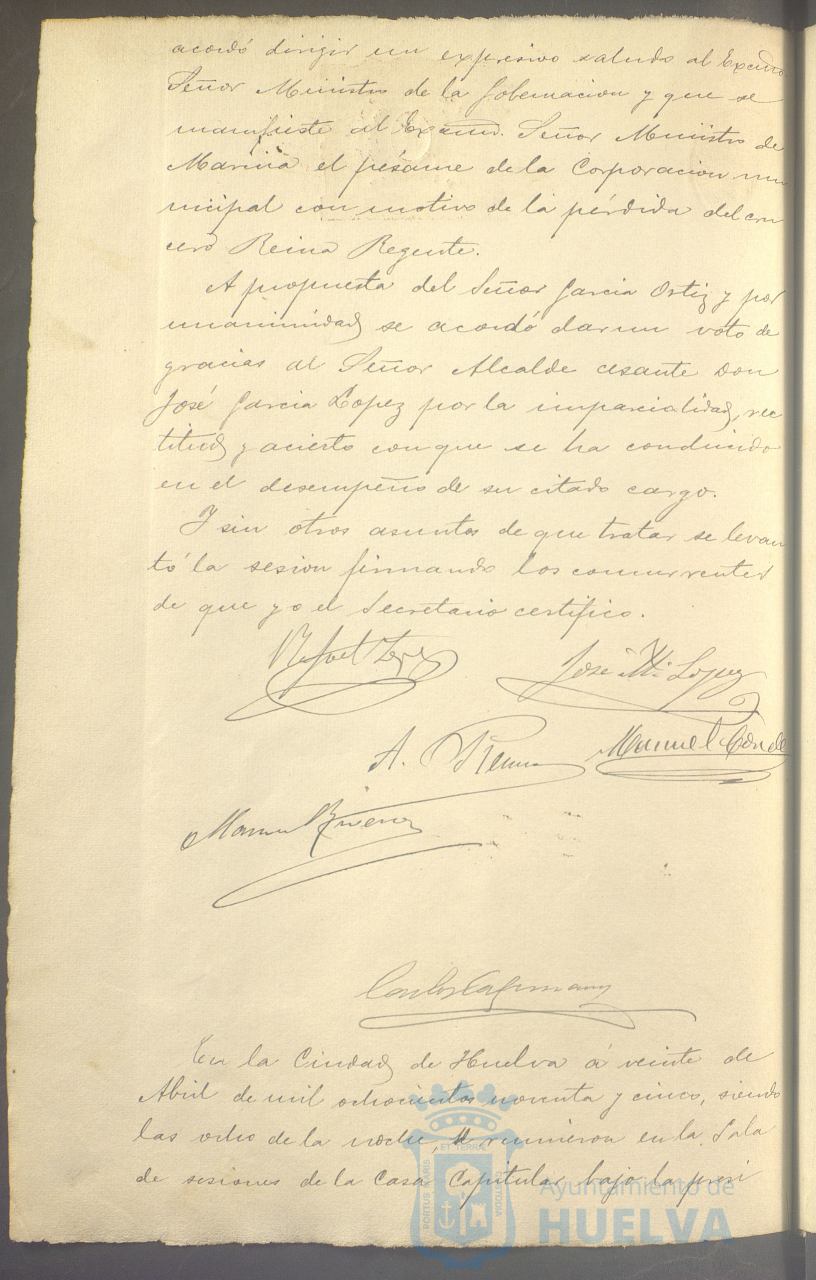 acordó dirigir un expresivo saludo al Excmo
Señor Ministro de la Gobernacion y que se
manifieste al Excmo. Señor Ministro de
Marina el pésame de la Corporacion mu
nicipal con motivo de la pérdida del cru
cero Reina Regente.
A propuesta del Señor Garcia Ortiz y por
unanimidad se acordó dar un voto de
gracias al Señor Alcalde cesante Don
José Garcia Lopez por la imparcialidad, rec
titud y acierto con que se ha conducido
en el desempeño de su citado cargo.
Y sin otros asuntos de que tratar se levan
tó la sesion firmando los concurrentes
de que yo el Secretario certifico.
Rafael Lopez
José Mª Lopez
A.
Manuel Conde
Manuel
En la Ciudad de Huelva á veinte de
Abril de mil ochocientos noventa y cinco, siendo
las ocho de la noche, se reunieron en la Sala
de sesiones de la Casa Capitular bajo la presi
PORTUS MARIS ET TERRE CUSTODIA
Ayuntamiento de
HUELVA